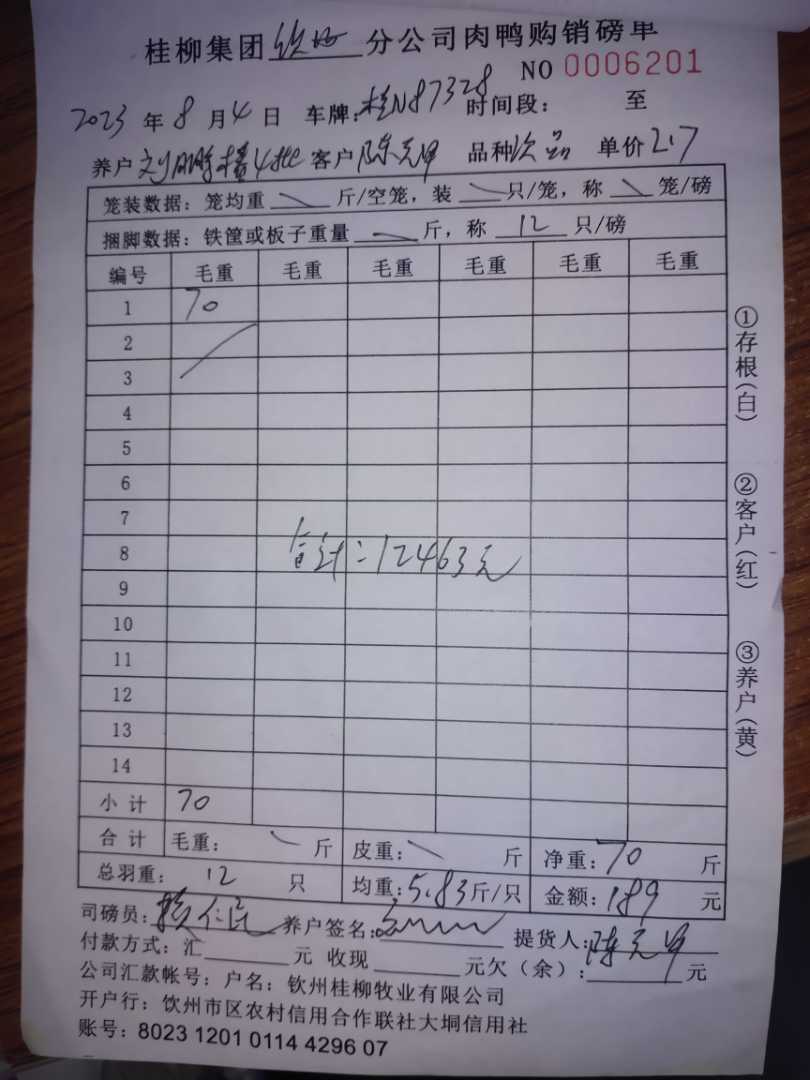 桂柳集团 钦州 分公司肉鸭购销磅单
NO 0006201
2023 年 8 月 4 日 车牌:桂N87328 时间段: 至
养户 客户 陈 品种 次品 单价 2.7
笼装数据:笼均重 斤/空笼,装 只/笼,称 笼/磅
捆脚数据:铁筐或板子重量 斤,称 12 只/磅
编号 毛重 毛重 毛重 毛重 毛重 毛重
1 70
2
3
4
5
6
7
8
合计:12463元
9
10
11
12
13
14
小计 70
合计 毛重: 斤 皮重: 斤 净重:70 斤
总羽重: 12 只 均重:5.83斤/只 金额:189 元
司磅员: 养户签名: 提货人:陈
付款方式:汇 元 收现 元欠(余): 元
公司汇款帐号:户名:钦州桂柳牧业有限公司
开户行:饮州市区农村信用合作联社大垌信用社
账号:8023 1201 0114 4296 07
①存根(白)
②客户(红)
③养户(黄)